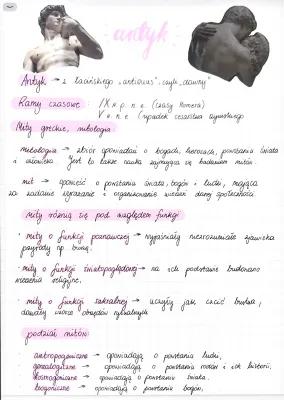 antyk
Antyk → z łacińskiego „antiquus", czyli „dawny"
Ramy czasowe: IX w p. n. e. (czasy Homera)
V w. n. e (upadek cesarstwa rzymskiego
Mity greckie, mitologia
mitologia → zbiór opowiadań o bogach, herosach, powstaniu świata
i człowieka. Jest to także nauka zajmująca się badaniem mitów.
mit → opowieść o powstaniu świata, bogów i ludzi, mająca
za zadanie wyrażanie i organizowanie wierzeń danej społeczności.
mity różnią się pod względem funkcji
· mity o funkcji poznawczej → wyjaśniały niezrozumiałe zjawiska
przyrody np. burzę.
· mity o funkcji światopoglądowej → na ich podstawie budowano
wierzenia religijne.
· mity o funkcji sakralnej → uczyły jak czcić bóstwa,
dawały wzorce obrzędów rytualnych
podział mitów:
antropogoniczne → opowiadają o powstaniu ludzi,
genealogiczne → opowiadają o powstaniu rodów i ich historii,
kosmogoniczne → opowiadają o powstaniu świata.
teogoniczne → opowiadają o powstaniu bogów,